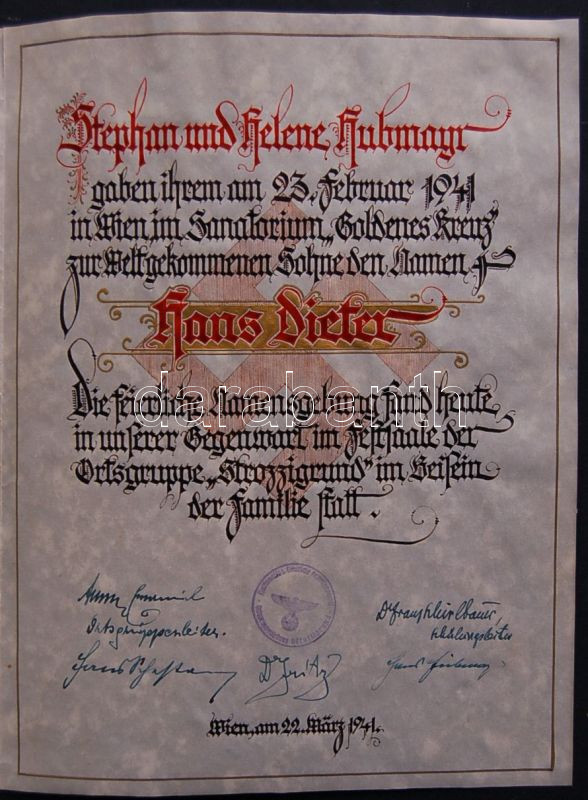 Stephan und Helene Hubmayr
gaben ihrem am 23. Februar 1941
in Wien im Sanatorium „Goldenes Kreuz"
zur Welt gekommenen Sohne den Namen
Hans Dieter
darabanth
Die feierliche Namensgebung fand heute
in unserer Gegenwart im Festsaale der
Ortsgruppe „Strozzigrund" im Beisein
der Familie statt.
Ortsgruppenleiter.
Schulungsleiter
Wien, am 22. März 1941.